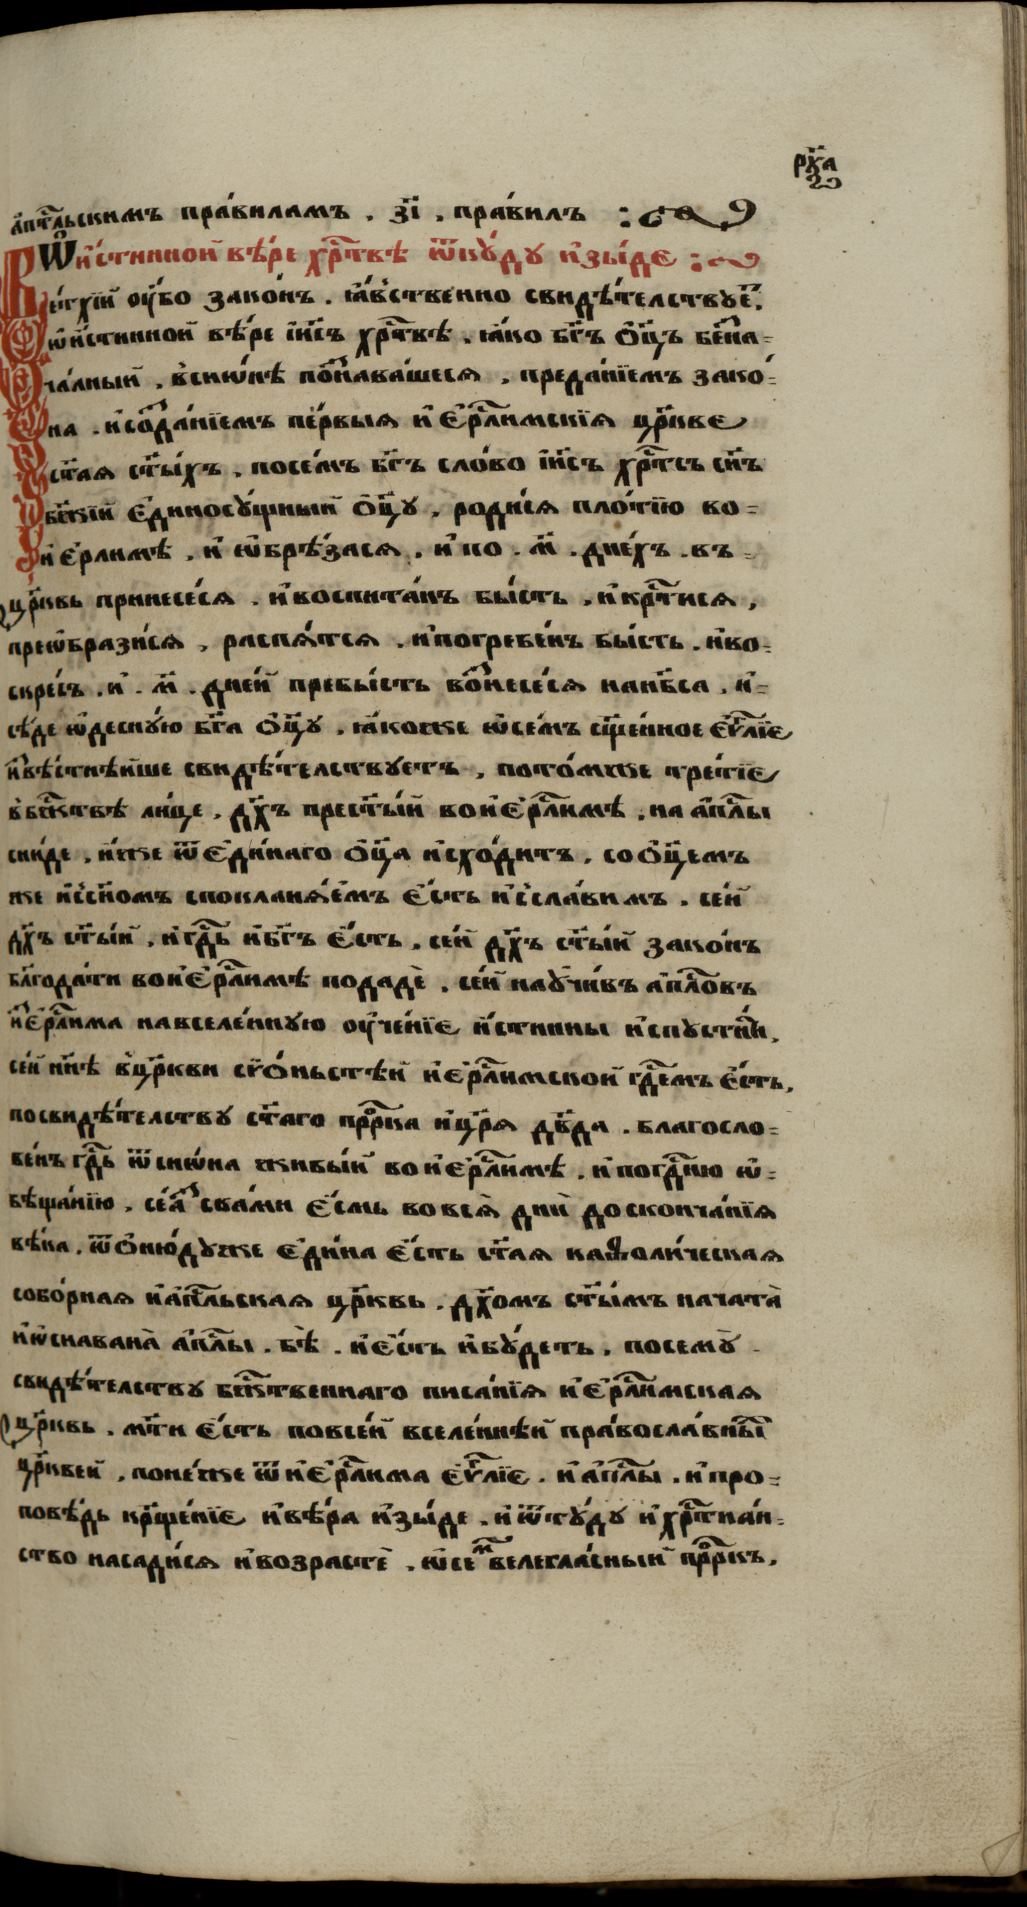 рч҃а
а҆пⷭ҇льскимъ пра́виламъ . з҃і . пра́вилъ :
Ѡ и҆́стинной вѣ́ре хрⷭ҇твѣ ѿкꙋ́дꙋ и҆зы́де :
Ве́тхїй ᲂу҆́бо зако́нъ . ꙗ҆́вственно свидѣ́тельствꙋеⷮ .
ѡ҆и҆́стинной вѣ́ре і҆и҃съ хрⷭ҇твѣ . ꙗ҆́ко бг҃ъ ѻ҆ц҃ъ беⷥна=
ча́лный , в̾сиѡ́нѣ поⷥнава́шесѧ , преда́нїемъ зако́=
на . и҆соⷥда́нїемъ пе́рвыѧ и҆ є҆рⷭ҇лимскїѧ цр҃кве
ст҃аѧ ст҃ы́хъ . посе́мъ бг҃ъ сло́во і҆и҃съ хрⷭ҇тсъ сн҃ъ
бж҃їй є҆диносꙋ́щный ѻ҆ц҃ꙋ̀ , роди́сѧ пло́тїю во=
и҆ є҆рлимѣ . и҆ ѡ҆брѣ́засѧ . и҆ по . м҃ . дне́хъ . въ=
цр҃ковь принесе́сѧ . и҆воспита́нъ бы́сть , и҆крⷭ҇тисѧ ,
преѡ҆брази́сѧ , распѧ́тсѧ . и҆погребе́нъ бы́сть . и҆во=
скре́съ . и҆ . м҃ . дне́й пребы́сть воⷥнесе́сѧ нанб҃са . и҆=
сѣ́де ѡ҆деснꙋ́ю бг҃а ѻ҆ц҃ꙋ̀ . ꙗ҆́коже ѡ҆се́мъ сщ҃е́нное є҆ѵⷢ҇лїе
и҆звѣ́стнѣйше свидѣ́тельствꙋетъ , пото́мже тре́тїе
в̾бжⷭ҇твѣ лице , дх҃ъ прест҃ы́й вои҆є҆рⷭ҇лимѣ . на а҆пⷭ҇лы
сни́де , и҆́же ѿ є҆ди́наго ѻ҆ц҃а̀ и҆схо́дитъ , соѻ҆ц҃емъ
же и҆с̾сн҃омъ спокланѧ́емъ є҆́сть и҆с̾сла́вимъ . се́й
дх҃ъ ст҃ы́й , и҆гдⷭ҇ь и҆бг҃ъ є҆́сть , се́й дх҃ъ ст҃ы́й зако́нъ
блг҃ода́ти вои҆є҆рⷭ҇лимѣ подадѐ . се́й наꙋчи́въ а҆пⷭ҇ловъ
и҆зⷭє҆рⷭ҇лима навселе́ннꙋю ᲂу҆че́нїе и҆́стинны и҆спꙋсти́лⷩ ,
се́й нн҃ѣ в̾цр҃кви сїѻ́ньстѣй и҆є҆рⷭ҇лимской гдⷭ҇емъ є҆́сть .
посвидѣ́тельствꙋ ст҃аго прⷪ҇рка и҆цр҃ѧ̀ дв҃да . благосло=
ве́нъ гдⷭ҇ь ѿ сиѡ́на живы́й во и҆є҆рⷭ҇лимѣ . и҆ погдⷭ҇ню ѡ҆=
вѣща́нїю , се́ а҆́зⷥ сва́ми є҆́смь во всѧ̀ дни̑ досконча́нїѧ
вѣ́ка . ѿѻ҆ню́дꙋже є҆ди́на є҆́сть ст҃аѧ каѳоли́ческаѧ
собо́рнаѧ и҆а҆пⷭ҇льскаѧ цр҃ковь . дх҃омъ ст҃ы́мъ нача́та
и҆ѡ҆снавана̀ а҆пⷭ҇лы . бѣ̀ . и҆є҆́сть и҆бꙋ́деть . посемꙋ̀
свидѣ́тельствꙋ бжⷭ҇твеннаго писа́нїѧ и҆ є҆рⷭ҇лимскаѧ
цр҃ковь . мт҃и є҆́сть повсе́й вселе́ннѣй правосла́вныⷯ
цр҃квей , поне́же ѿ и҆є҆рⷭ҇лима є҆ѵⷢ҇лїе . и҆ а҆пⷭ҇лы . и҆ про=
повѣ́дь крⷭ҇ще́нїе и҆вѣ́ра и҆зы́де . и҆ ѿтꙋ́дꙋ и҆ хрⷭ҇тиа́н=
ство насади́сѧ и҆возрастѐ . ѡ҆семⷨ велегла́сный прⷪ҇ркъ ,